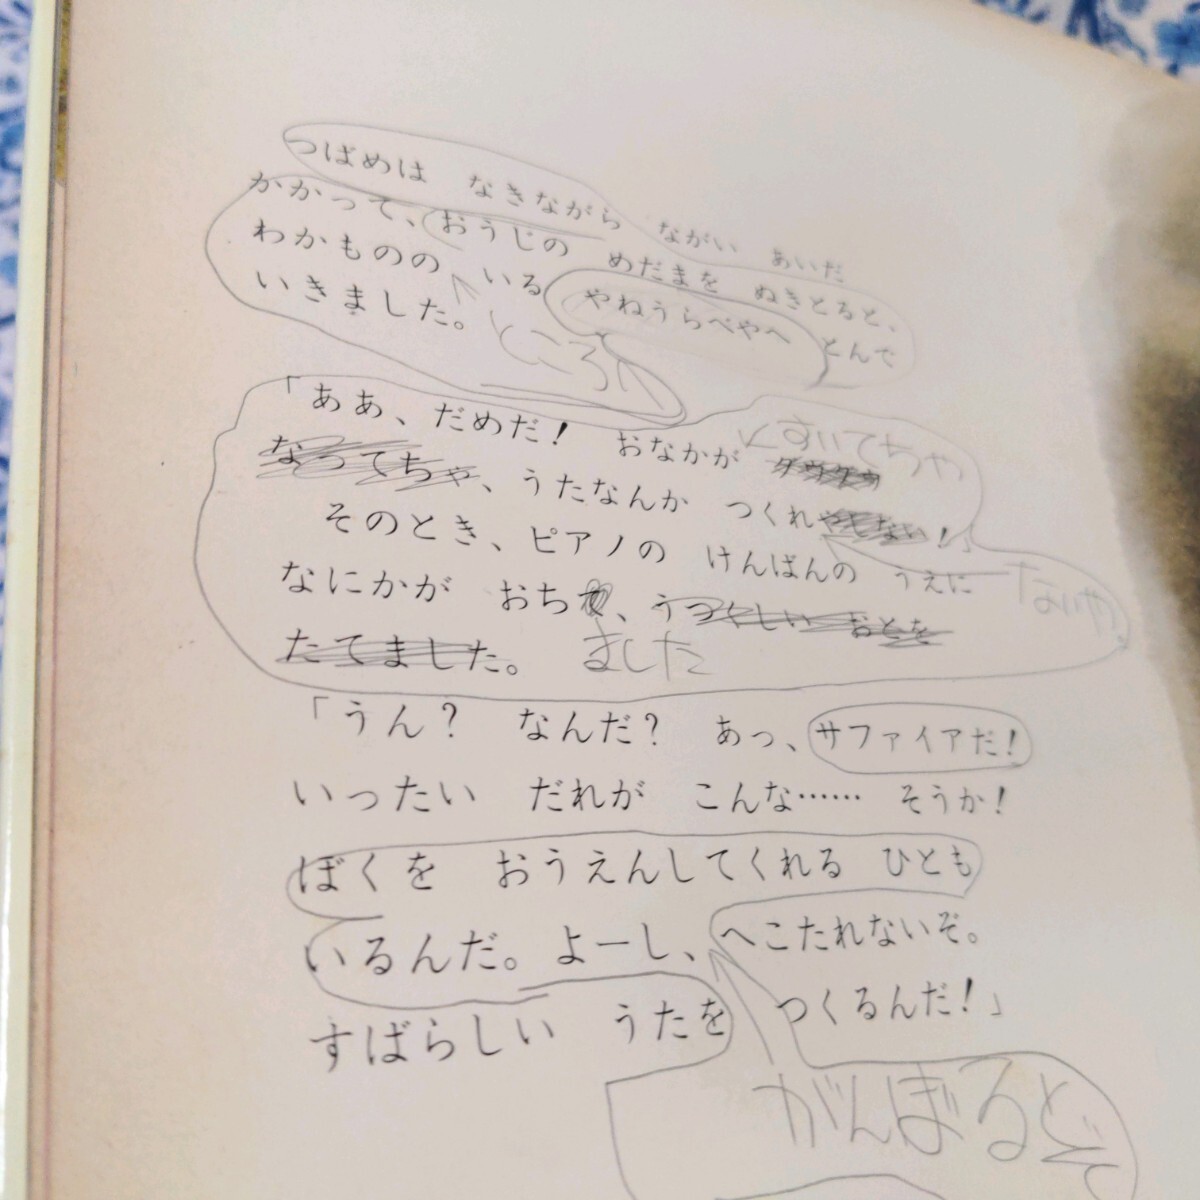 つばめは なきながら ながい あいだ
かかって、おうじの めだまを ぬきとると、
わかものの いる やねうらべやへ とんで
いきました。 ところへ
「ああ、だめだ！ おなかが グウグウ すいてちゃ
なってちゃ、うたなんか つくれやしない！」
そのとき、ピアノの けんばんの うえに ないや。
なにかが おちて、うつくしい おとを
たてました。 ました
「うん？ なんだ？ あっ、サファイアだ！
いったい だれが こんな…… そうか！
ぼくを おうえんしてくれる ひとも
いるんだ。よーし、へこたれないぞ。
すばらしい うたを つくるんだ！」
がんばるぞ